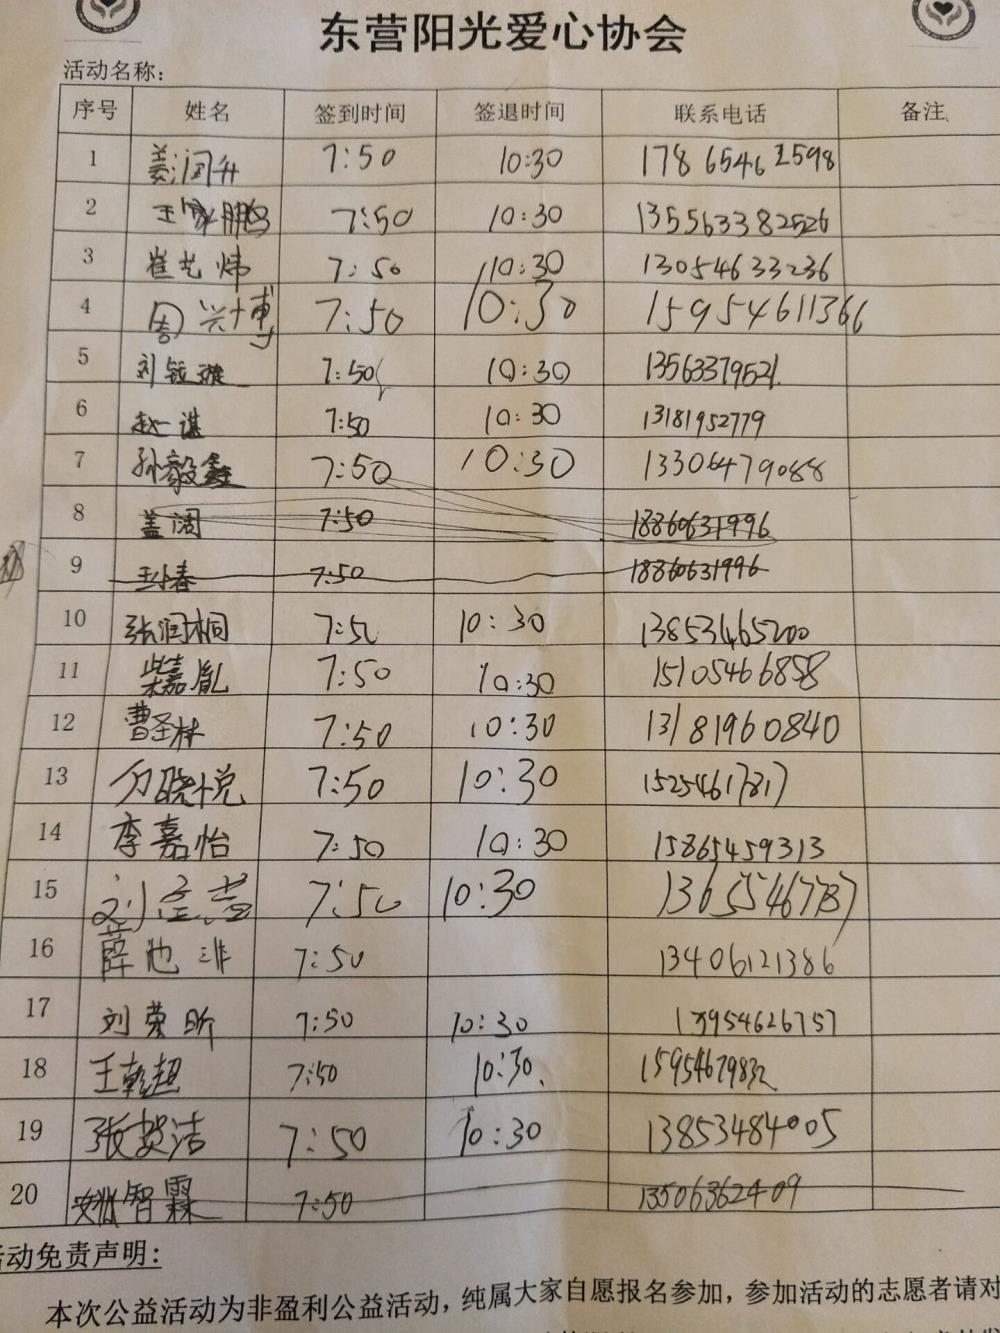 东营阳光爱心协会
活动名称:
序号 姓名 签到时间 签退时间 联系电话 备注
1 姜润升 7:50 10:30 178 6546 2598
2 王家鹏 7:50 10:30 135563382526
3 崔艺炜 7:50 10:30 13054633236
4 周兴博 7:50 10:30 15954611366
5 刘钰璇 7:50 10:30 13563379521
6 赵一谋 7:50 10:30 13181952779
7 孙毅鑫 7:50 10:30 13306479088
8 盖阔 7:50 18860631996
9 王小春 7:50 18860631996
10 张润桐 7:50 10:30 13853465200
11 柴嘉胤 7:50 10:30 15105466858
12 曹圣林 7:50 10:30 13181960840
13 万晓悦 7:50 10:30 15254617817
14 李嘉怡 7:50 10:30 15865459313
15 刘 7:50 10:30
16 薛 7:50 13406121386
17 刘荣昕 7:50 10:30
18 王乾超 7:50 10:30 15954679832
19 张 洁 7:50 10:30 13853484005
20 姚智霖 7:50 13506362409
活动免责声明:
本次公益活动为非盈利公益活动,纯属大家自愿报名参加,参加活动的志愿者请对